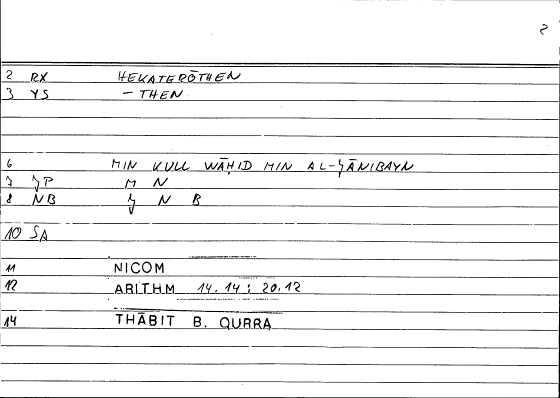 2
2 RX HEKATERŌTHEN
3 YS - THEN
6 MIN KULL WĀḤID MIN AL-ǦĀNIBAYN
7 ǦP M N
8 NB Ǧ N B
10 SA
11 NICOM
12 ARITHM 14.14 : 20.12
14 THĀBIT B. QURRA